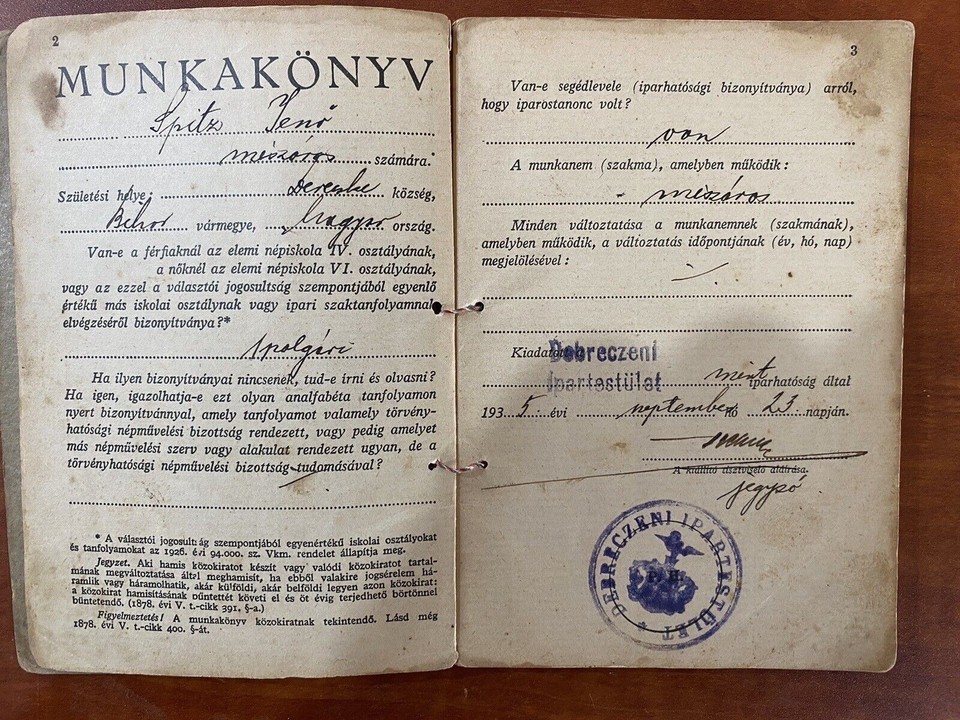 2
MUNKAKÖNYV
Spitz Jenő
mészáros számára.
Születési helye: Derecske község,
Bihar vármegye, Magyar ország.
Van-e a férfiaknál az elemi népiskola IV. osztályának,
a nőknél az elemi népiskola VI. osztályának,
vagy az ezzel a választói jogosultság szempontjából egyenlő
értékű más iskolai osztálynak vagy ipari szaktanfolyamnak
elvégzéséről bizonyítványa?*
4 polgári
Ha ilyen bizonyítványai nincsenek, tud-e irni és olvasni?
Ha igen, igazolhatja-e ezt olyan analfabéta tanfolyamon
nyert bizonyítvánnyal, amely tanfolyamot valamely törvény-
hatósági népművelési bizottság rendezett, vagy pedig amelyet
más népművelési szerv vagy alakulat rendezett ugyan, de a
törvényhatósági népművelési bizottság tudomásával?
* A választói jogosultság szempontjából egyenértékű iskolai osztályokat
és tanfolyamokat az 1926. évi 94.000. sz. Vkm. rendelet állapítja meg.
Jegyzet. Aki hamis közokiratot készít vagy valódi közokiratot tartal-
mának megváltoztatása által meghamisít, ha ebből valakire jogsérelem há-
ramlik vagy háramolhatik, akár külföldi, akár belföldi legyen azon közokirat:
a közokirat hamisításának bűntettét követi el és öt évig terjedhető börtönnel
büntetendő. (1878. évi V. t.-cikk 391. §-a.)
Figyelmeztetés! A munkakönyv közokiratnak tekintendő. Lásd még
1878. évi V. t.-cikk 400. §-át.
3
Van-e segédlevele (iparhatósági bizonyítványa) arról,
hogy iparostanonc volt?
van
A munkanem (szakma), amelyben működik:
mészáros
Minden változtatása a munkanemnek (szakmának),
amelyben működik, a változtatás időpontjának (év, hó, nap)
megjelölésével:
Kiadatott a Debreczeni
Ipartestület mint iparhatóság által
1935. évi szeptember hó 23. napján.
A kiállító tisztviselő aláírása.
jegyző
DEBRECZENI IPARTESTÜLET
P. H.